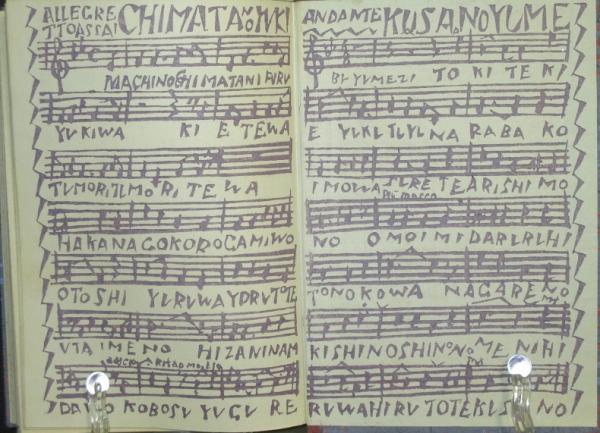 ALLEGRE
TTOASSAI
CHIMATA NO YUKI
MACHINO CHIMATANI FURU
YUKIWA KIETEWA
TUMORITUMORITEWA
HAKANAGOKOROGAMIWO
OTOSHI YURUWAYORUTOTE
UTAIMENO HIZANINAM
DAWO KOBOSU YUGURE
ANDANTE
KUSA NO YUME
YUMEZI TOKITEKI
E YUKU TUYU NARABA KO
IMOWA SURETEARISHIMO
NO OMOIMIDARURUHI
TONOKOWA NAGARENO
KISHINOSHINONOMENIHI
RUWAHIRU TOTEKUSANO